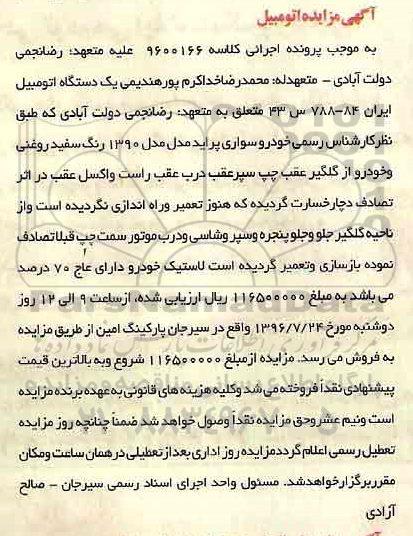 آگهی مزایده اتومبیل
به موجب پرونده اجرائی کلاسه ۹۶۰۰۱۶۶ علیه متعهد: رضانجمی
دولت آبادی - متعهدله: محمدرضاخداکرم پورهندیمی یک دستگاه اتومبیل
ایران ۸۴-۷۸۸ س ۴۳ متعلق به متعهد: رضانجمی دولت آبادی که طبق
نظرکارشناس رسمی خودرو سواری پراید مدل مدل ۱۳۹۰ رنگ سفید روغنی
وخودرو از گلگیر عقب چپ سپرعقب درب عقب راست واکسل عقب در اثر
تصادف دچارخسارت گردیده که هنوز تعمیر وراه اندازی نگردیده است واز
ناحیه گلگیر جلو وجلو پنجره وسپر وشاسی ودرب موتور سمت چپ قبلاتصادف
نموده بازسازی وتعمیر گردیده است لاستیک خودرو دارای عاج ۷۰ درصد
می باشد به مبلغ ۱۱۶۵۰۰۰۰۰ ریال ارزیابی شده، ازساعت ۹ الی ۱۲ روز
دوشنبه مورخ ۱۳۹۶/۷/۲۴ واقع در سیرجان پارکینگ امین از طریق مزایده
به فروش می رسد. مزایده ازمبلغ ۱۱۶۵۰۰۰۰۰ شروع وبه بالاترین قیمت
پیشنهادی نقداً فروخته می شد وکلیه هزینه های قانونی به عهده برنده مزایده
است ونیم عشروحق مزایده نقداً وصول خواهد شد ضمناً چنانچه روز مزایده
تعطیل رسمی اعلام گرددمزایده روز اداری بعد از تعطیلی در همان ساعت ومکان
مقرربرگزارخواهدشد. مسئول واحد اجرای اسناد رسمی سیرجان - صالح
آزادی